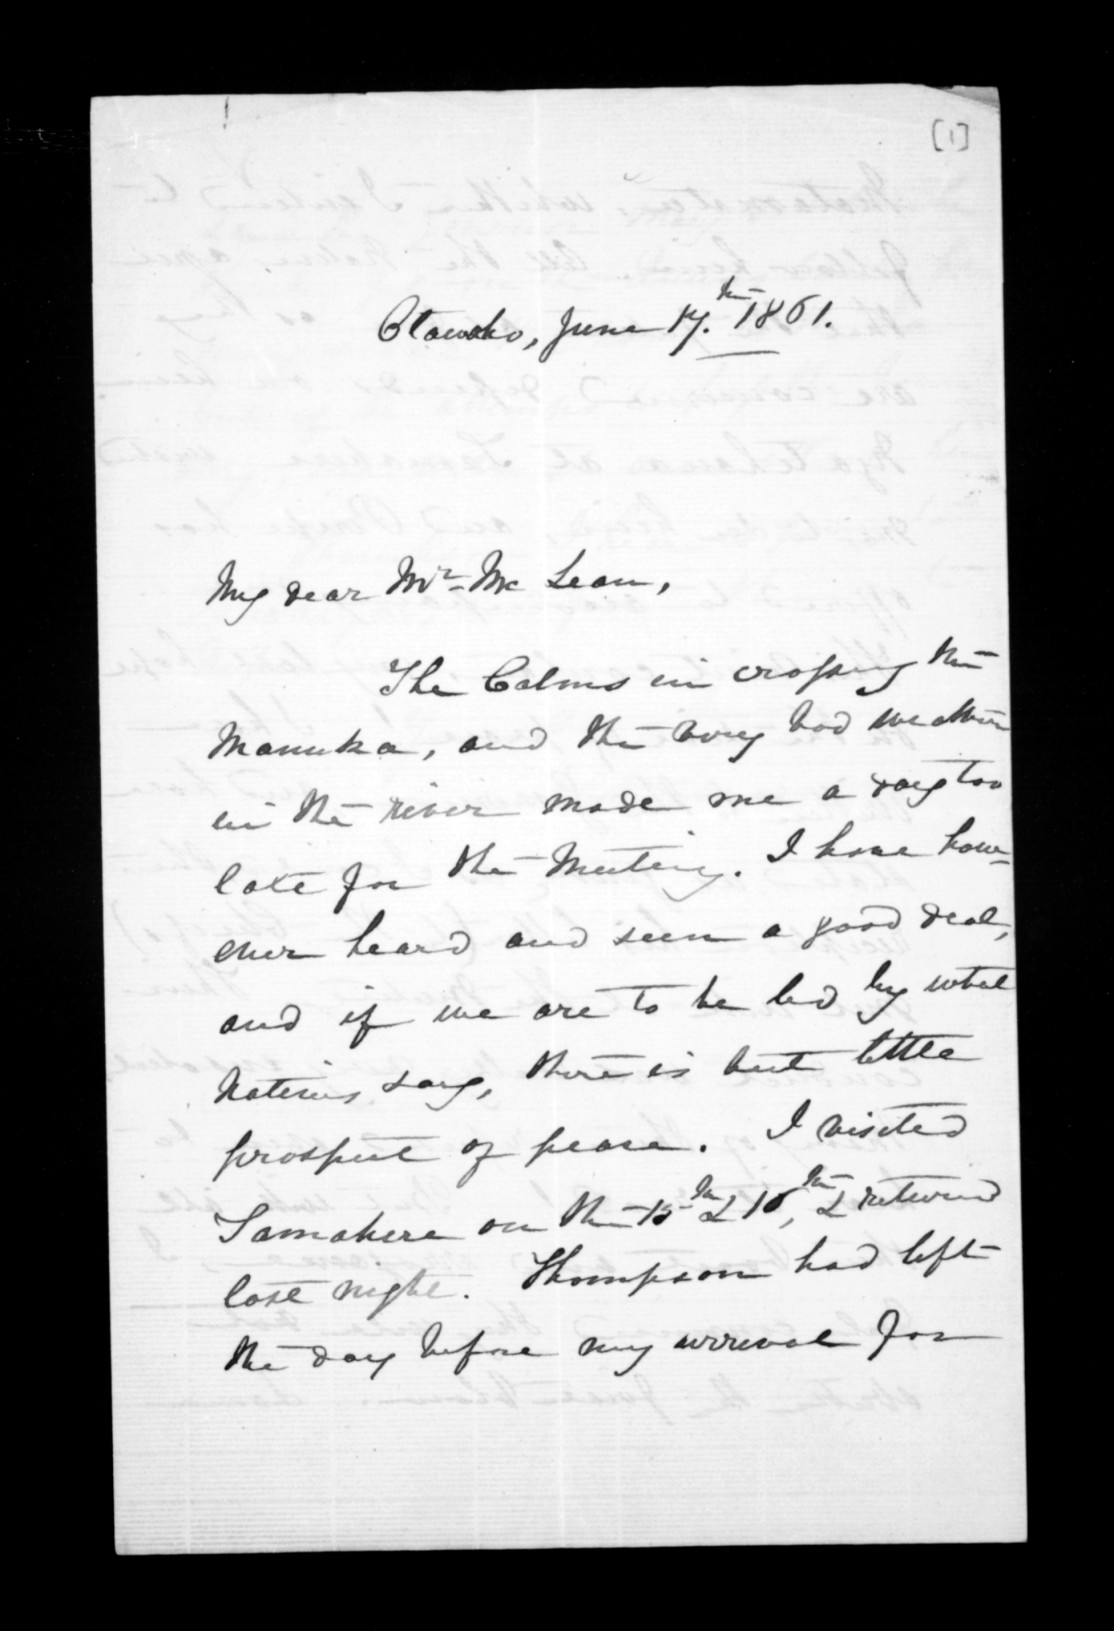 [1]
Otawhao, June 17.th 1861.
My dear Mr. Mc Lean,
The Calms in crossing the
Manuka, and the very bad weather
in the river made me a day too
late for the Meeting. I have how-
ever heard and seen a good deal,
and if we are to be led by what
Natives say, there is but little
prospect of peace. I visited
Tamahere on the 15th & 16th, & returned
last night. Thompson had left
the day before my arrival for